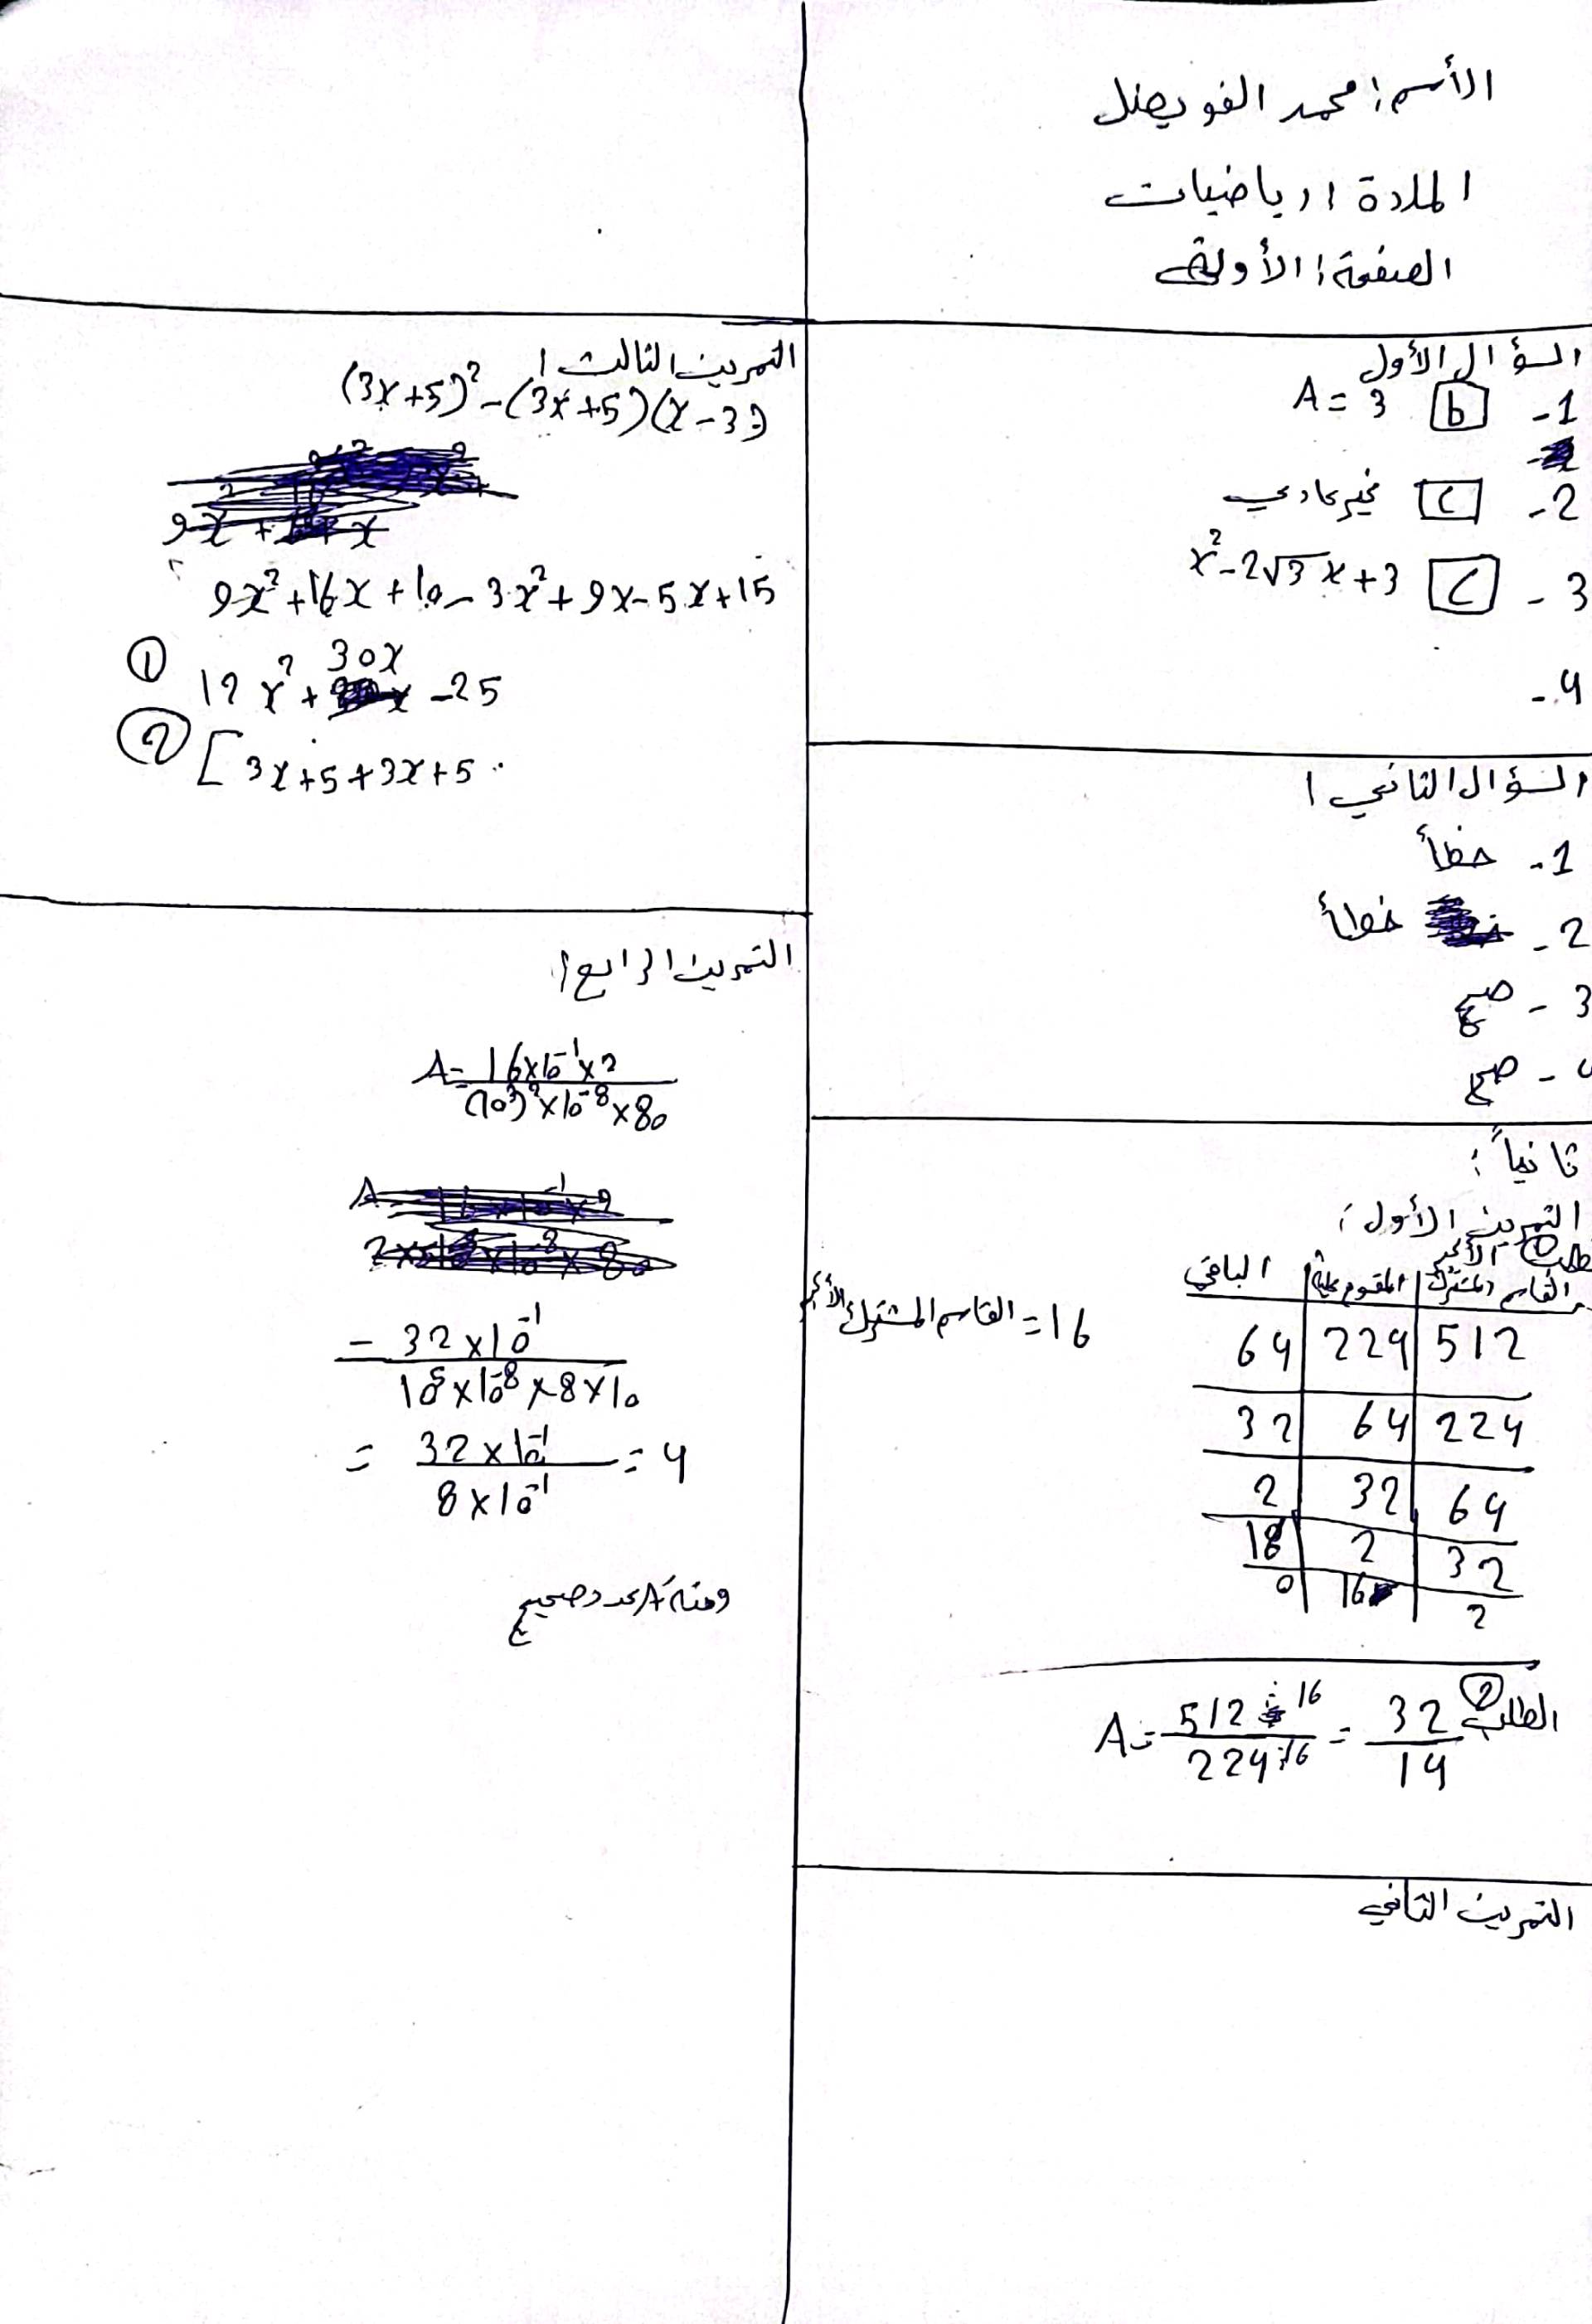 الأسم: محمد الفويصل
المادة: رياضيات
الصفحة: الأولى
السؤال الأول
1- b A = 3
2- c غير عادي
3- c x² - 2√3 x + 3
4-
السؤال الثاني:
1- خطأ
2- خطأ
3- صح
4- صح
ثانياً:
التمرين الأول:
طلب ① الأكبر
القاسم المشترك | المقسوم عليه | الباقي
512 | 224 | 64
224 | 64 | 32
64 | 32 | 2
32 | 2 | 18
2 | 16 | 0
16 = القاسم المشترك الأكبر
الطلب ②
A = 512 ÷ 16 / 224 ÷ 16 = 32 / 14
التمرين الثاني
التمرين الثالث:
(3x+5)² - (3x+5)(x-3)
9x² + 16x + 10 - 3x² + 9x - 5x + 15
① 12x² + 30x - 25
② [3x+5+3x+5
التمرين الرابع:
A = 16×10⁻¹×2 / (10³)²×10⁻⁸×80
= 32×10⁻¹ / 10⁵×10⁻⁸×8×10
= 32×10⁻¹ / 8×10⁻¹ = 4
ومنه A عدد صحيح